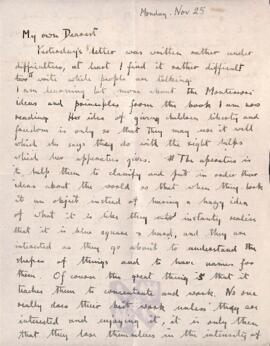 Monday. Nov 25
My own Dearest
Yesterday's letter was written rather under
difficulties, at least I find it rather difficult
to write while people are talking.
I am learning lot more about the Montessori
ideas and principles from the book I am now
reading. Her idea of giving children liberty and
freedom is only so that they may use it well
which she says they do with the right helps
which her apparatus gives. The aparatus is
to help them to classify and put in order their
ideas about the world so that when they look
at an object instead of having a hazy idea
of what it is like they instantly realise
that it is blue square & hard, and they are
interested as they go about to understand the
shapes of things and to have names for
them. Of course the great thing is that it
teaches them to concentrate and work. No one
really does their best work unless they are
interested and enjoying it, it is only then
that they lose themselves in the intensity of